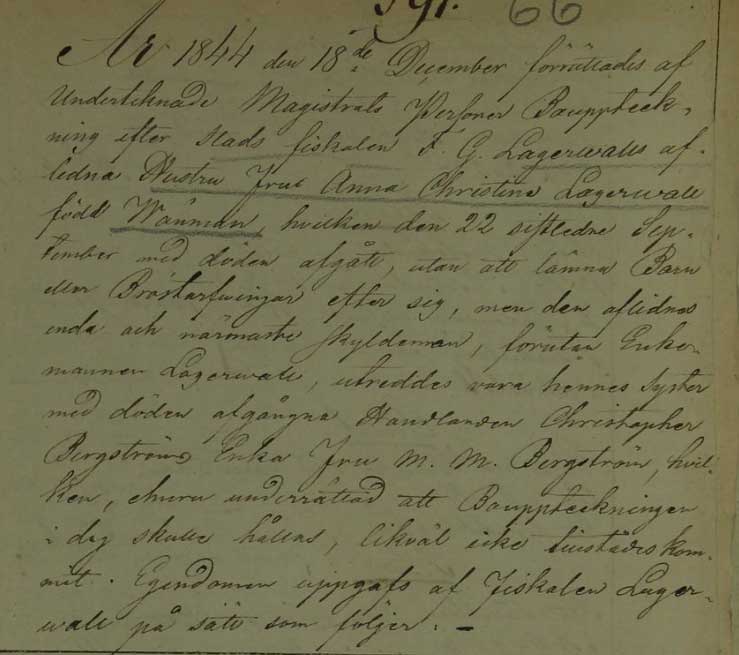 391.
66
År 1844 den 18de December förrättades af
Undertecknade Magistrats Personer Bouppteck-
ning efter Stads fiskalen F. G. Lagerwalls af-
lidna Hustru Frue Anna Christina Lagerwall
född Wänman, hvilken den 22 sistledne Sep-
tember med döden afgått, utan att lämna Barn
eller Bröstarfwingar efter sig, men den aflidnas
enda och närmaste skyldeman, förutan Enke-
mannen Lagerwall, utreddes vara hennes Syster
med döden afgångna Handlanden Christopher
Bergströms Enka Frue M. M. Bergström, hvil-
ken, ehuru underrättad att Bouppteckningen
i dag skulle hållas, likväl icke tillstädeskom-
mit. Egendomen uppgafs af Fiskalen Lager-
wall på sätt som följer. –